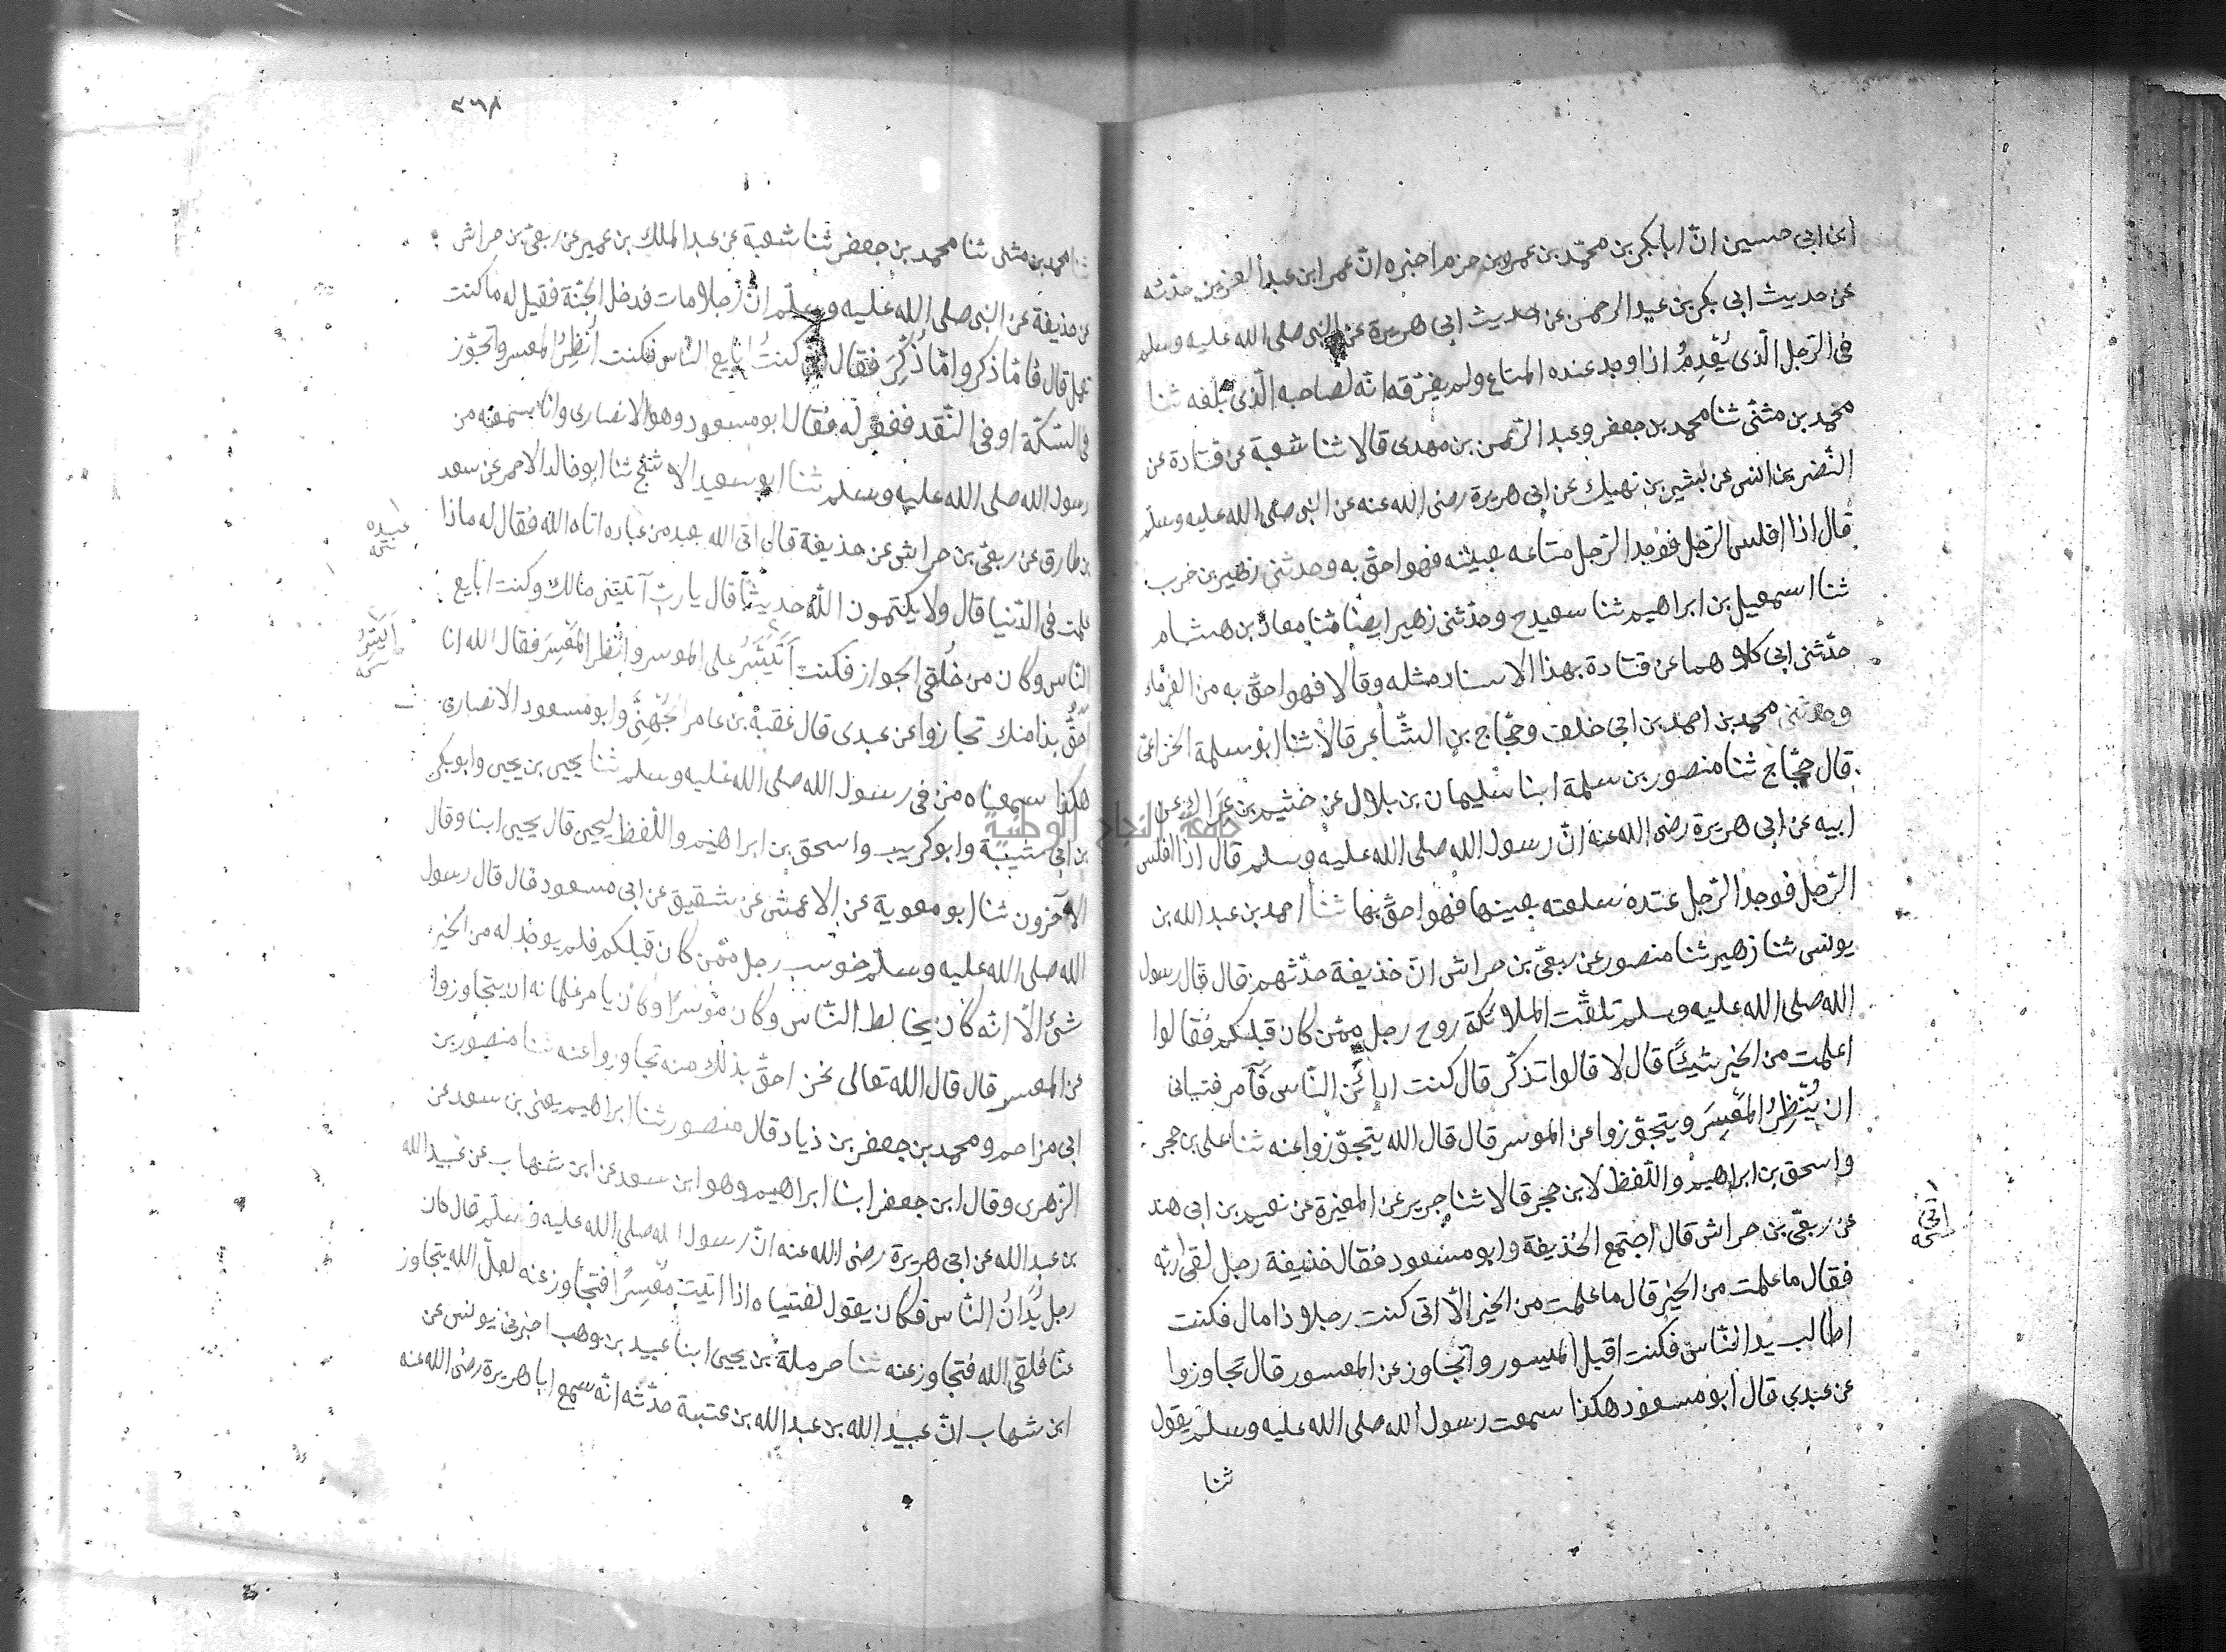 ابن ابي حسين انّ ابا بكر بن محمّد بن عمرو بن حزم اخبره انّ عمر ابن عبد العزيز حدّثه
عن حديث ابي بكر بن عبد الرحمن عن حديث ابي هريرة عن النبي صلى الله عليه وسلم
في الرّجل الّذي يُعْدِمُ اذا وجد عنده المتاع ولم يفرّقه انّه لصاحبه الّذي بَاعه ثنا
محمد بن مثنّى ثنا محمد بن جعفر وعبد الرّحمن بن مهدى قالا ثنا شعبة عن قتادة عن
النّضر بن انس عن بشير بن نهيك عن ابي هريرة رضى الله عنه عن النبي صلى الله عليه وسلّم
قال اذا افلس الرّجل فوجد الرّجل متاعه بعينه فهو احقّ به وحدثني زهير بن حرب
ثنا اسمعيل بن ابراهيم ثنا سعيد ح وحدّثني زهير ايضا ثنا معاذ بن هشام
حدّثني ابي كلاهما عن قتادة بهذا الاسناد مثله وقالا فهو احقّ به من الغرماء
وحدثني محمد بن احمد بن ابي خلف وحجّاج بن الشّاعر قالا ثنا ابو سلمة الخزاعي
قال حجّاج ثنا منصور بن سلمة ابنا سليمان بن بلال عن خثيم بن عِرَاك عن
ابيه عن ابي هريرة رضى الله عنه انّ رسول الله صلى الله عليه وسلم قال اذا افلس
الرّجل فوجد الرّجل عنده سلعته بعينها فهو احقّ بها ثنا احمد بن عبد الله بن
يونس ثنا زهير ثنا منصور عن ربعيّ بن حراش انّ حذيفة حدّثهم قال قال رسول
الله صلى الله عليه وسلم تلقّت الملائكة روح رجل ممّن كان قبلكم فقالوا
اعلمت من الخير شيئًا قال لا قالوا تذكّر قال كنت اداين النّاس فآمر فتياني
ان يُنْظِرُوا المُعْسِرَ ويتجوّزوا عن الموسر قال قال الله يتجوّزوا عنه ثنا على بن حجر
واسحق بن ابراهيم واللّفظ لابن حجر قالا ثنا جرير عن المغيرة عن نعيم بن ابي هند
عن ربعيّ بن حراش قال اجتمع الحذيفة وابو مسعود فقال حذيفة رجل لقى ربّه
فقال ما علمت من الخير قال ما علمت من الخير الّا انّي كنت رجلا ذا مال فكنت
اطالب به النّاس فكنت اقبل الميسور واتجاوز عن المعسور قال تجاوزوا
عن عبدي قال ابو مسعود هكذا سمعت رسول الله صلى الله عليه وسلم يقول
ثنا
انّي
٣٦٨
ثنا محمد بن مثنى ثنا محمد بن جعفر ثنا شعبة عن عبد الملك بن عمير عن ربعيّ بن حراش
عن حذيفة عن النبي صلى الله عليه وسلّم انّ رجلا مات فدخل الجنّة فقيل له ما كنت
تعمل قال فامّا ذكر وامّا ذُكِّرَ فقال انّي كنتُ ابايع النّاس فكنت اُنْظِرُ المعسر واتجوّز
في السّكّة او في النّقد فغفر له فقال ابو مسعود وهو الانصاري وانا سمعته من
رسول الله صلى الله عليه وسلم ثنا ابو سعيد الاشجّ ثنا ابو خالد الاحمر عن سعد
بن طارق عن ربعيّ بن حراش عن حذيفة قال اتى الله بعبد من عباده اتاه الله فقال له ماذا
علمت في الدّنيا قال ولا يكتمون الله حديثًا قال يا ربّ آتيتني مالك وكنت ابايع
النّاس وكان من خُلُقي الجواز فكنت اَتَيَسَّرُ على الموسر وانظر المُعْسِرَ فقال الله انا
احقّ بذا منك تجاوزوا عن عبدي قال عقبة بن عامر الجُهَنِيّ وابو مسعود الانصاري
هكذا سمعناه من في رسول الله صلى الله عليه وسلم ثنا يحيى بن يحيى وابو بكر
بن ابي شيبة وابو كريب واسحق بن ابراهيم واللّفظ ليحيى قال يحيى ابنا وقال
الآخرون ثنا ابو معوية عن الاعمش عن شقيق عن ابي مسعود قال قال رسول
الله صلى الله عليه وسلّم حوسب رجل ممّن كان قبلكم فلم يوجد له من الخير
شئ الّا انّه كان يخالط النّاس وكان موسرًا وكان يامر غلمانه ان يتجاوزوا
عن المعسر قال قال الله تعالى نحن احقّ بذلك منه تجاوزوا عنه ثنا منصور بن
ابي مزاحم ومحمد بن جعفر بن زياد قال منصور ثنا ابراهيم يعني بن سعد عن
الزّهري وقال ابن جعفر ابنا ابراهيم وهو ابن سعد عن ابن شهاب عن عبيد الله
بن عبد الله عن ابي هريرة رضى الله عنه انّ رسول الله صلى الله عليه وسلّم قال كان
رجل يُدَانُ النّاس فكان يقول لفتياه اذا اتيت مُعْسِرًا فتجاوز عنه لعلّ الله يتجاوز
عنّا فلقى الله فتجاوز عنه ثنا حرملة بن يحيى ابنا عبيد بن وهب اخبرني يونس عن
ابن شهاب انّ عبيد الله بن عبد الله بن عتبة حدّثه انّه سمع ابا هريرة رضى الله عنه
عبده
جامعة النجاح الوطنية